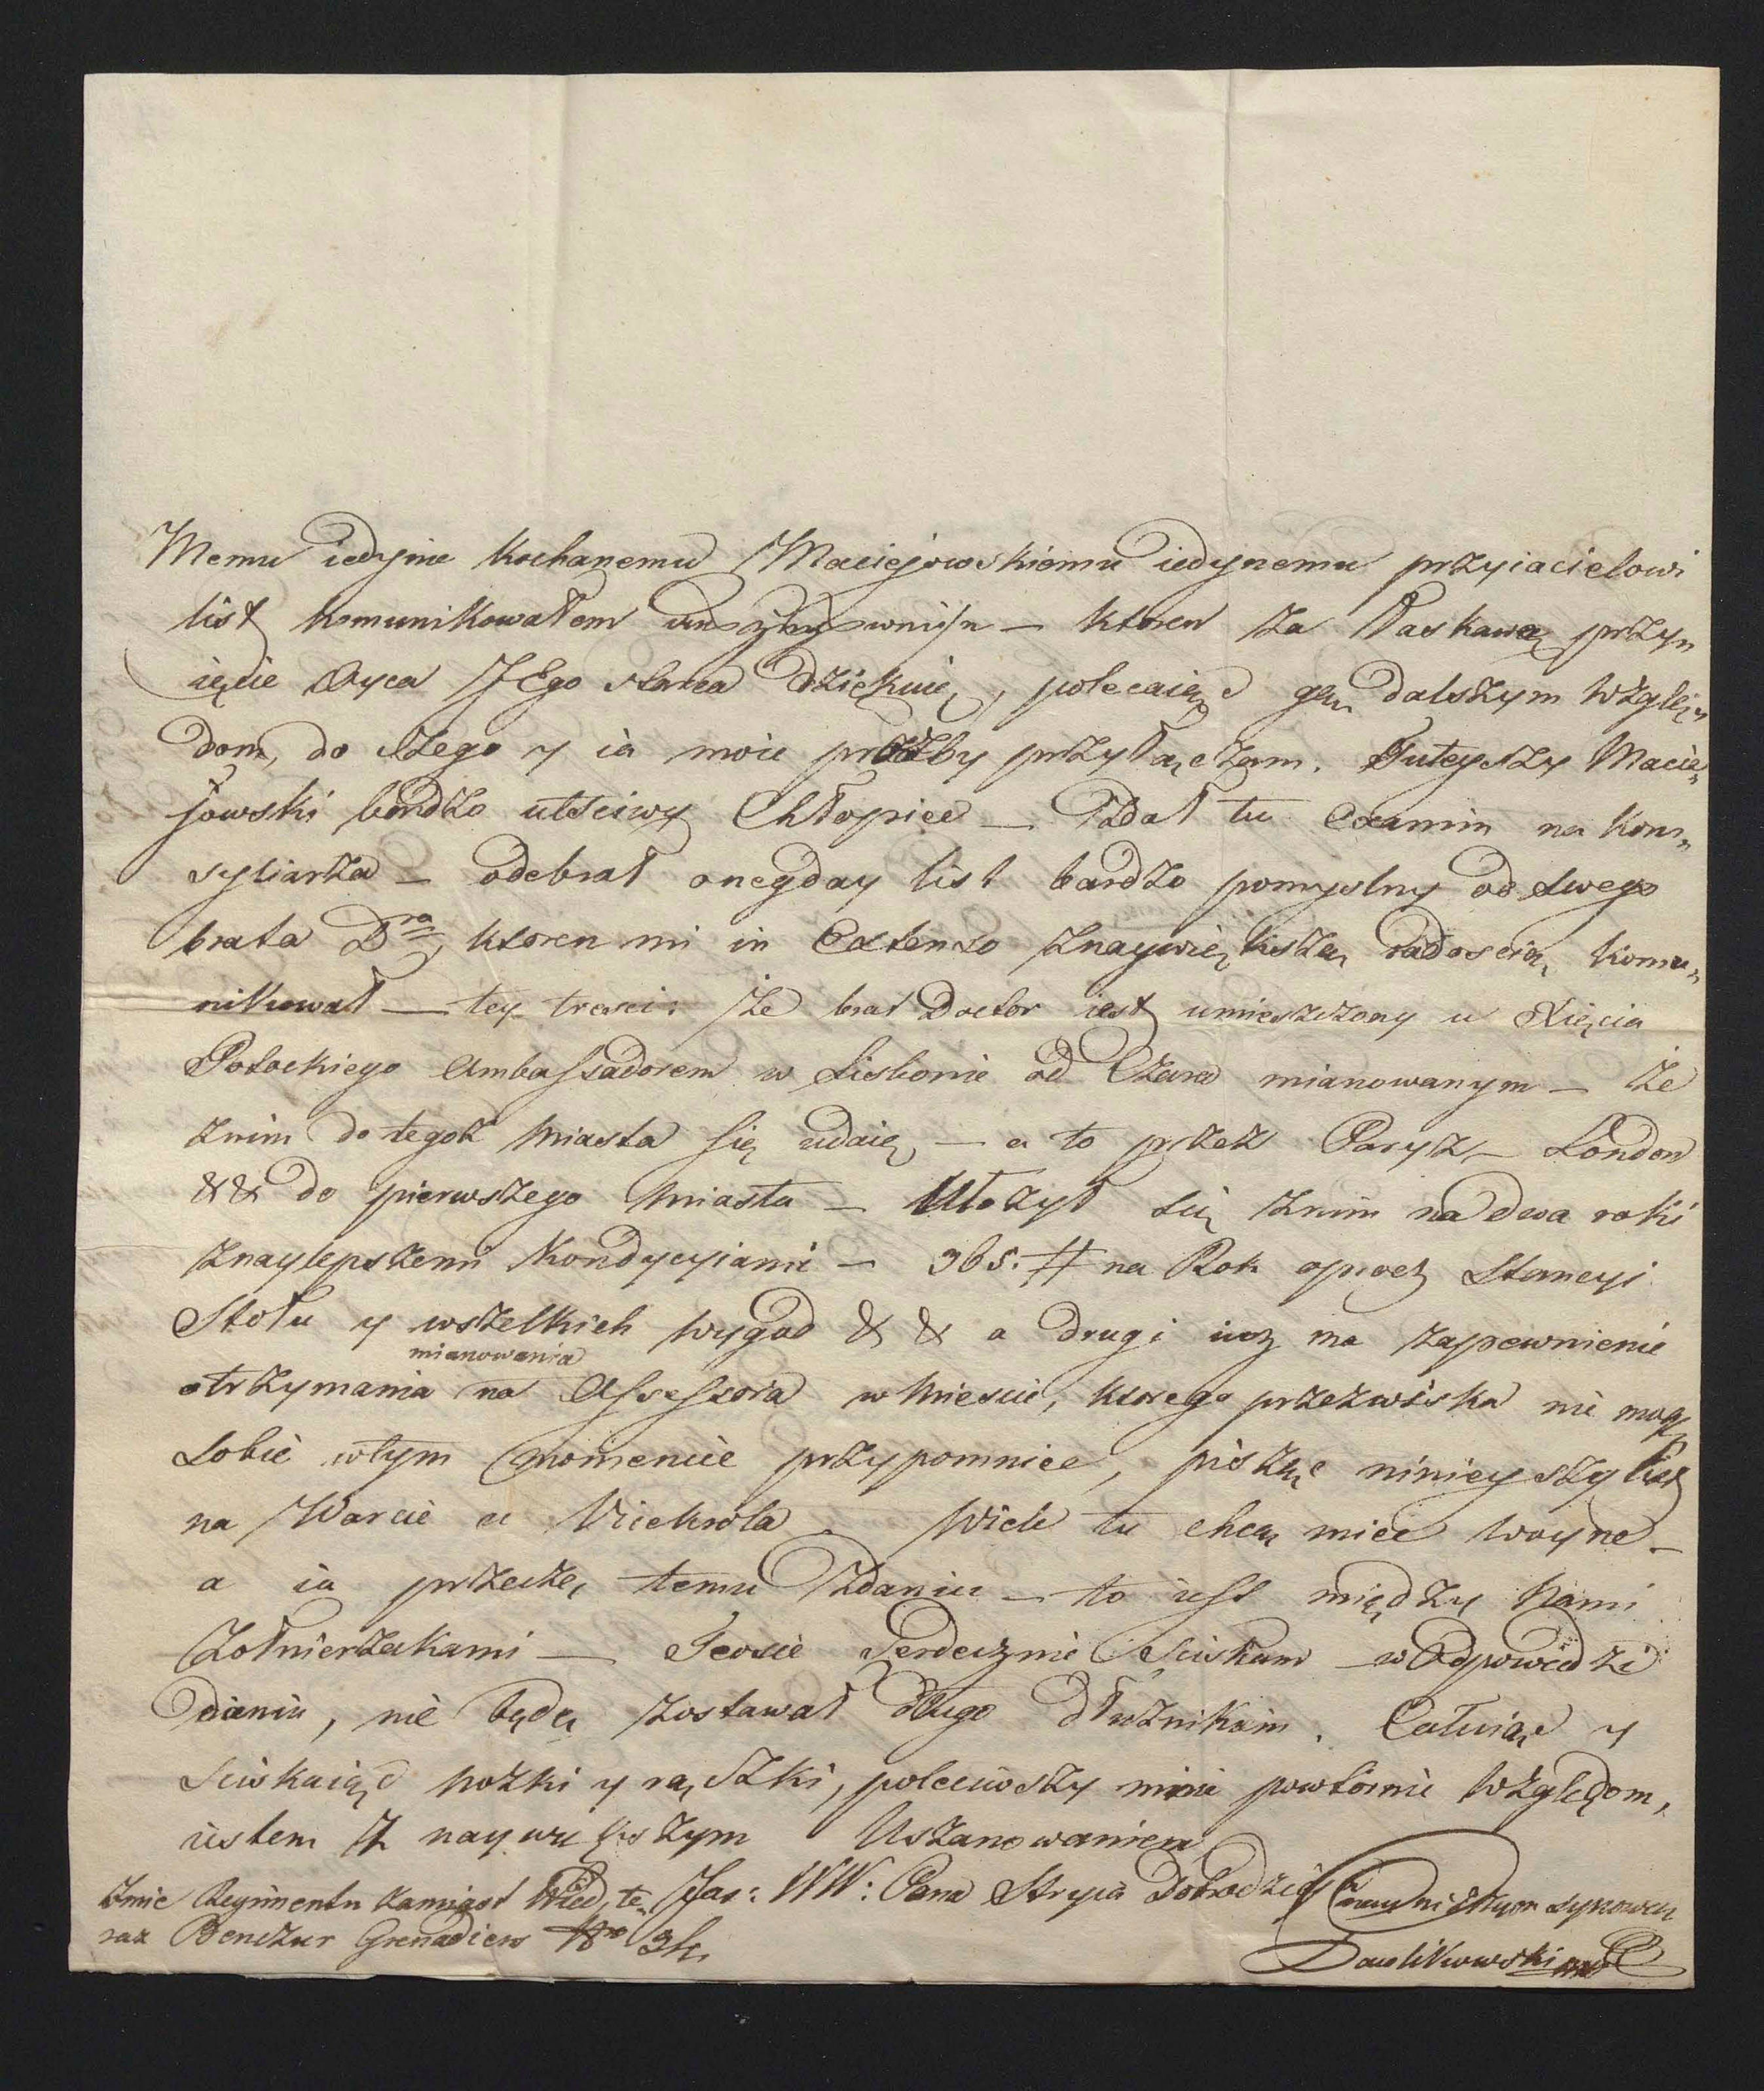 Memu iedynie kochanemu Maciejowskiemu iedynemu przyiacielowi
list komunikowałem – ktoren za łaskawe przy„
ięcie Oyca JEgo starca dziękuię, polecaiąc go dalszym wzglę„
dom, do czego y ia moie prozby przyłączam. Tuteyszy Macie„
jowski bardzo utściwy Chłopiec – Zdał tu Examin na Kon„
syliarza – odebrał onegday list bardzo pomyslny od swego
brata Dra, ktoren mi in Extenso znaywiększą radoscią komu„
nikował – tey tresci: że brat Doctor iest umieszczony u Xięcia
Potockiego Ambassadorem w Lisbonie od Czara mianowanym – że
znim do tegoż Miasta się udaie – a to przez Paryz – London
&& do pierwszego Miasta – Ułozył się znim na dwa roki
znaylepszemi Kondycyiami – 365. # na Rok oprocz Stancyi
Stołu y wszelkich wygod & & a drugi iuz ma zapewnienie
mianowania
otrzymania na Assessora w Miescie, ktorego przezwiska nie mogę
sobie wtym momencie przypomniec, pisząc ninieyszy list
na Warcie u Vicekrola. Wiele tu chcą miec woyne –
a ia przeczę temu zdaniu – to iest między Nami
Zołnierzakami – Teosie Serdecznie Sciskam – w Odpowiedzi
daniu, nie będę zostawał długo dłuznikiem. Całuiąc y
sciskaiąc nożki y rączki, poleciwszy mnie powtornie względom,
iestem z naywiększym Uszanowaniem
Imie Regimentu zamiast Wied, te„ Jas: WW: Pana Stryia Dobrodzieia synowcem
raz Benczur Grenadiers Nro 34. Pawlikowski